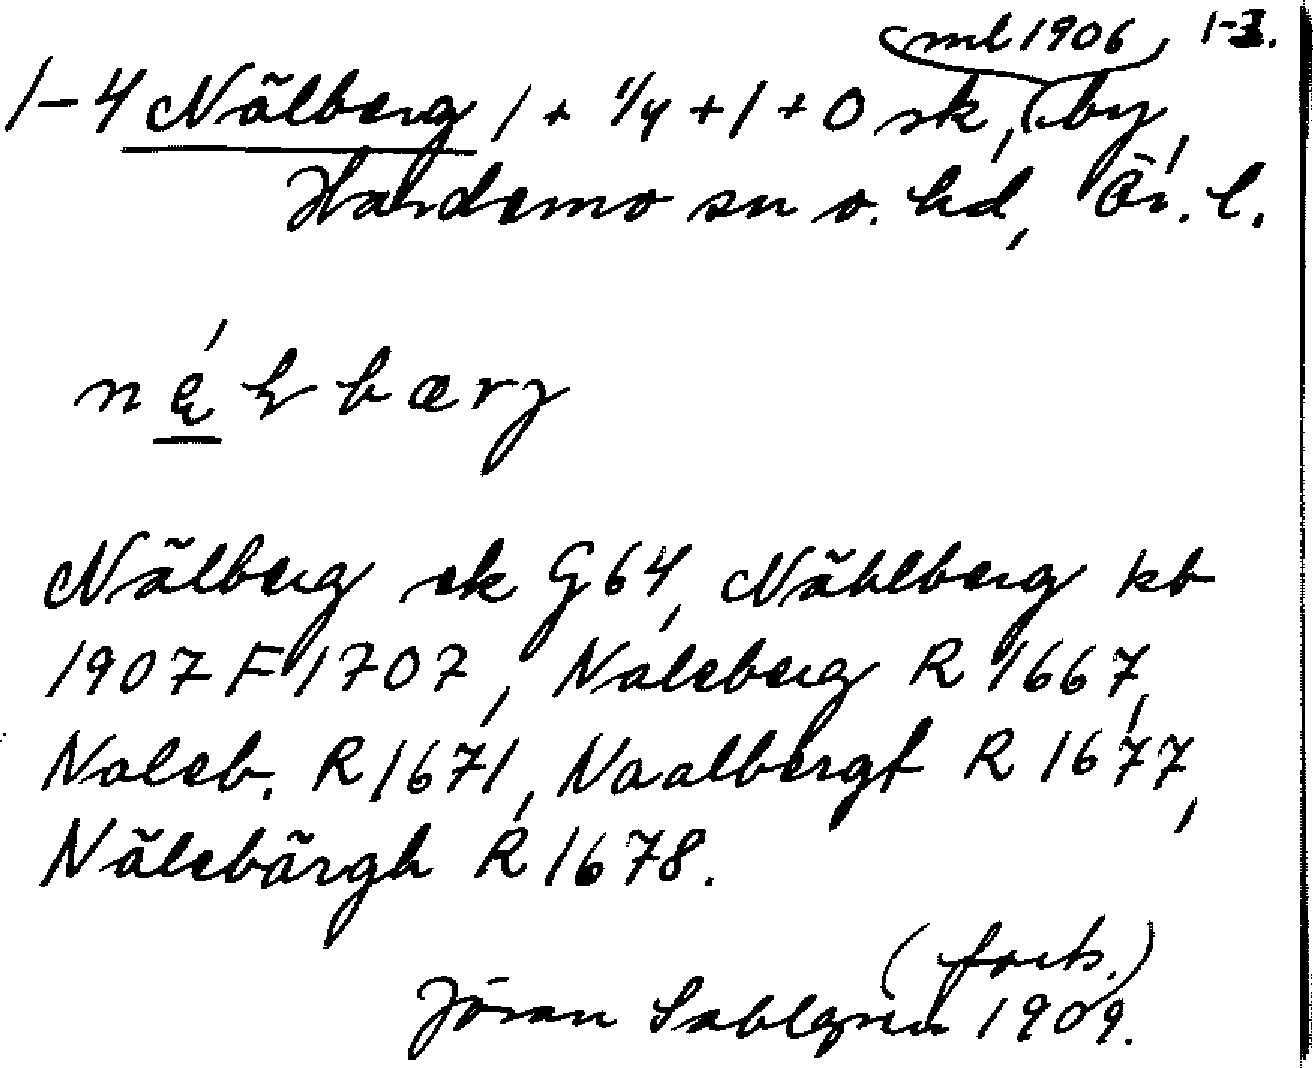 ml 1906 1-3.
1-4 Nälberg 1 + 1/4 + 1 + 0 sk, (by,
Hardemo sn o. hd, Ör. l.
næ̨lbærj
Nälberg ek G64, Nählberg kb
1907 F 1707, Naleberg R 1667,
Naleb. R 1671, Naalbergh R 1677,
Nälebärgh R 1678.
(forts.)
Jöran Sahlgren 1909.